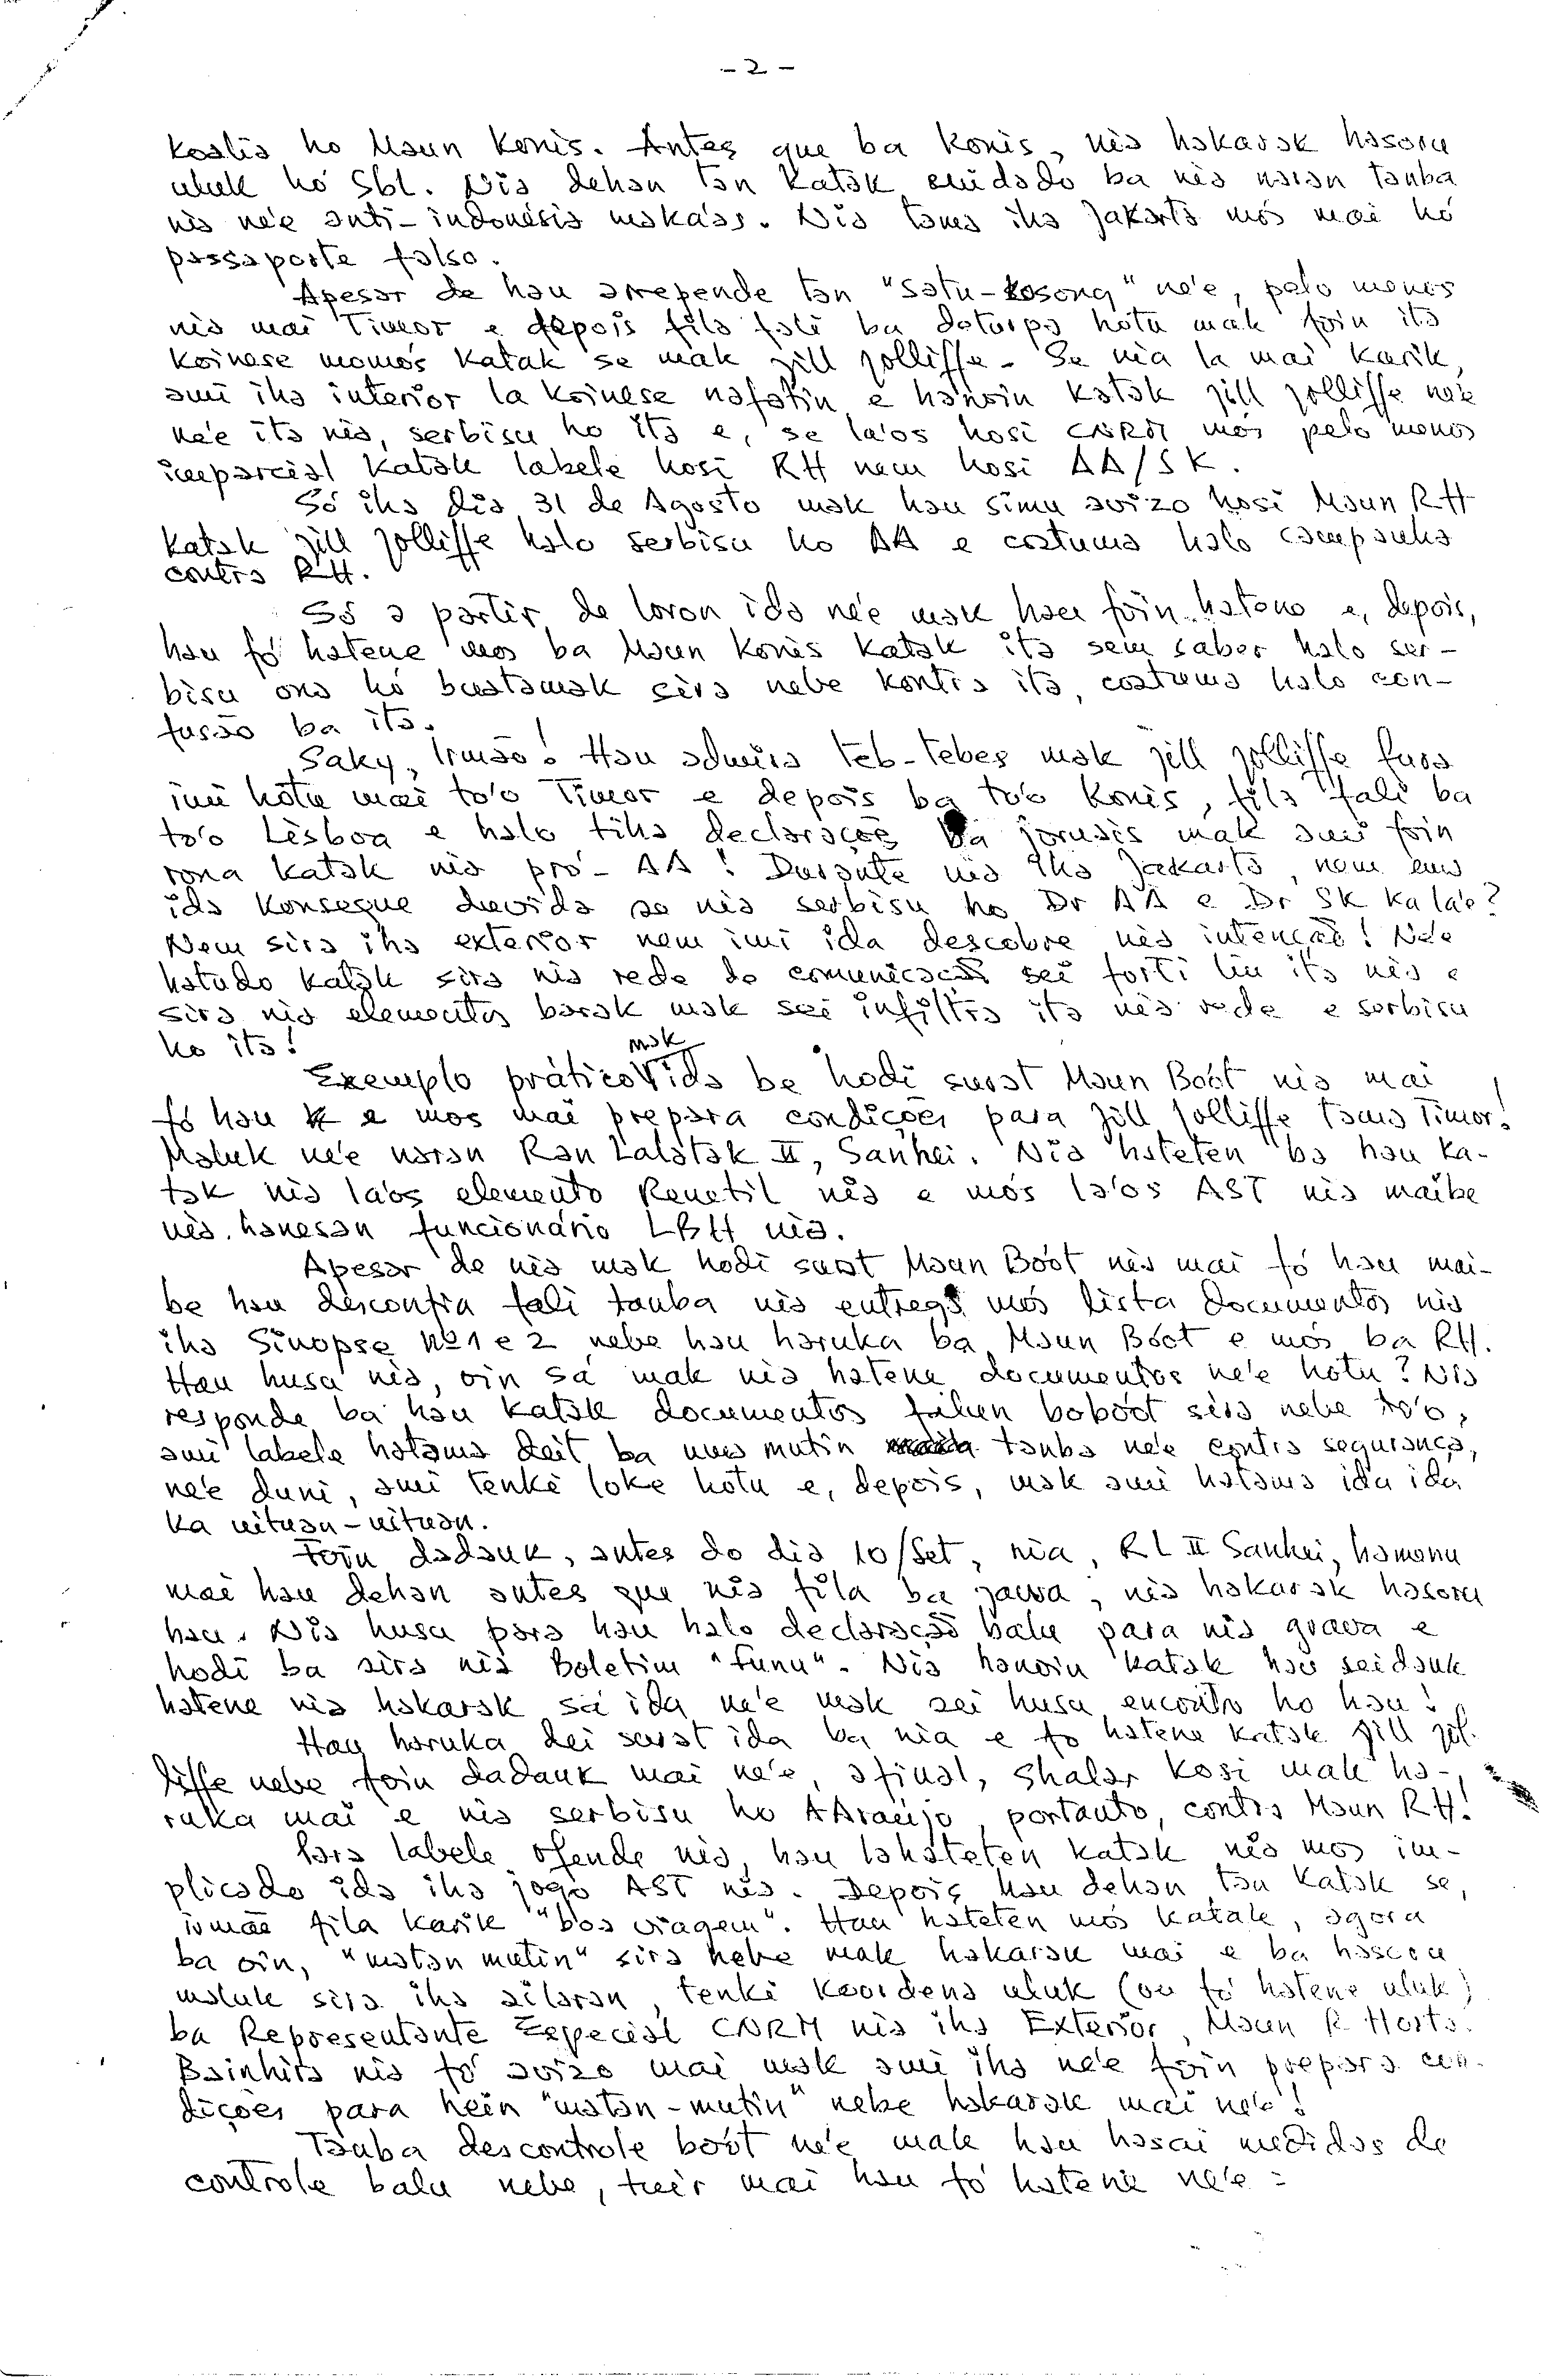 - 2 -
koalia ho Maun Konis. Antes que ba Konis, nia hakarak hasoru
uluk hó Sbl. Nia dehan tan katak cuidado ba nia naran tanba
nia ne'e anti-indonésia maka'as. Nia tama iha Jakarta mós mai hó
passaporte falso.
Apesar de hau arrepende tan "satu-kosong" ne'e, pelo menos
nia mai Timor e depois fila fali ba deturpa hotu mak foin ita
koinese momós katak se mak Jill Jolliffe. Se nia la mai karik,
ami iha interior la koinese nafatin e hanoin katak Jill Jolliffe ne'e
ne'e ita nia, serbisu ho ita e, se la'os hosi CNRM mós pelo menos
imparcial katak labele hosi RH nem hosi AA/SK.
Só iha dia 31 de Agosto mak hau simu avizo hosi Maun RH
katak Jill Jolliffe halo serbisu ho AA e costuma halo campanha
contra RH.
Só a partir de loron ida ne'e mak hau foin hatene e, depois,
hau fó hatene mos ba Maun Konis katak ita sem saber halo ser-
bisu ona hó bustamak sira nebe kontra ita, costuma halo con-
fusão ba ita.
Saky, Irmão! Hau admira teb-tebes mak Jill Jolliffe fura
imi hotu mai to'o Timor e depois ba to'o Konis, fila fali ba
to'o Lisboa e halo tiha declarações ba jornais mak ami foin
rona katak nia pró-AA! Durante nia iha Jakarta, nem ema
ida konsegue duvida se nia serbisu ho Dr AA e Dr SK ka la'e?
Nem sira iha exterior nem imi ida descobre nia intenção! Ne'e
hatudo katak sira nia rede de comunicação sei forti liu ita nia e
sira nia elementos barak mak sei infiltra ita nia rede e serbisu
ho ita!
Exemplo prático mak ida be hodi surat Maun Boót nia mai
fó hau e mos mai prepara condições para Jill Jolliffe tama Timor!
Maluk ne'e naran Ran Lalatak II, Sanhei. Nia hateten ba hau ka-
tak nia la'os elemento Renetil nia e mós la'os AST nia maibe
nia hanesan funcionário LBH nia.
Apesar de nia mak hodi surat Maun Boót nia mai fó hau mai-
be hau desconfia fali tanba nia entrega mós lista documentos nia
iha Sinopse Nº 1 e 2 nebe hau haruka ba Maun Boót e mós ba RH.
Hau husa nia, oin sá mak nia hatene documentos ne'e hotu? Nia
responde ba hau katak documentos fahen boboót sira nebe to'o,
ami labele hatama deit ba uma mutin tanba ne'e contra segurança,
ne'e duni, ami tenki loke hotu e, depois, mak ami hatama ida ida
ka nituan-nituan.
Foin dadauk, antes do dia 10/Set, nia, RL II Sanhei, hamanu
mai hau dehan antes que nia fila ba Jawa, nia hakarak hasoru
hau. Nia husu para hau halo declaração balu para nia grava e
hodi ba sira nia Boletim "Funu". Nia hanoin katak hau seidauk
hatene nia hakarak sá ida ne'e mak sei husu encontro ho hau!
Hau haruka dei surat ida ba nia e fo hatene katak Jill Jol-
liffe nebe foin dadauk mai ne'e, afinal, Ghalar Kosi mak ha-
ruka mai e nia serbisu ho AAraújo, portanto, contra Maun RH!
Para labele ofende nia, hau lahateten katak nia mos im-
plicado ida iha jogo AST nia. Depois hau dehan tan katak se,
irmão fila karik "boa viagem". Hau hateten mós katak, agora
ba oin, "matan mutin" sira nebe mak hakarak mai e ba hasoru
maluk sira iha ailaran, tenki koordena uluk (ou fó hatene uluk)
ba Representante Especial CNRM nia iha Exterior, Maun R. Horta.
Bainhira nia fó avizo mai mak ami iha ne'e foin prepara con-
dições para hein "matan-mutin" nebe hakarak mai ne'e!
Tanba descontrole boót ne'e mak hau hasai medidas de
controle balu nebe, tuir mai hau fó hatene ne'e: